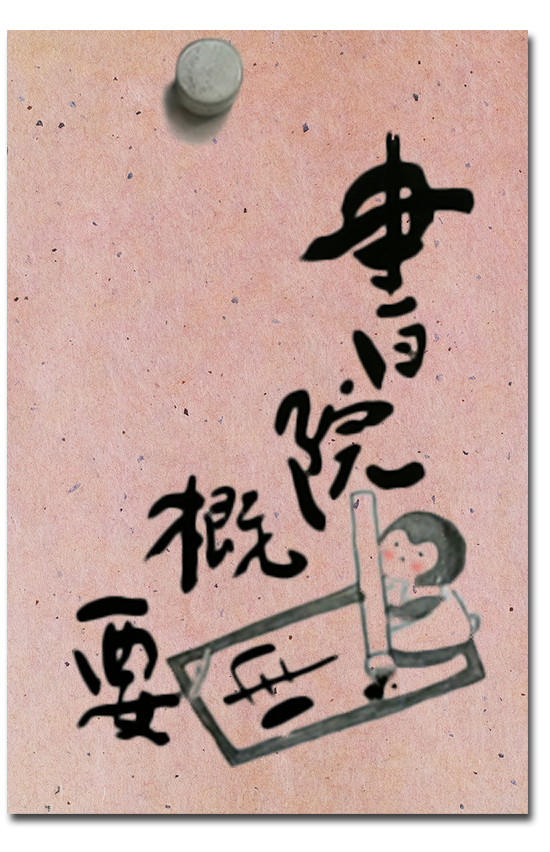 書院概要